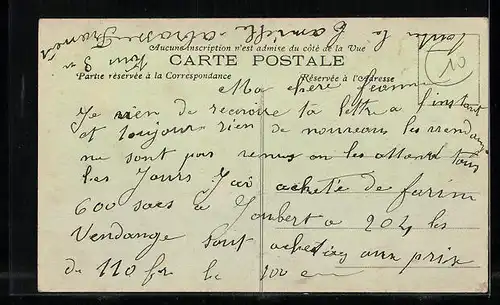 toute la famille
Aucune inscription n'est admise du côté de la Vue
CARTE POSTALE
Partie réservée à la Correspondance
Réservée à l'Adresse
10
Ma chere Jeanne
Je vien de recevoire ta lettre a l'instant
et toujour rien de nouveau les vendange
ne sont pas venus on les attend tous
les Jours J'ai acheté de farine
600 sacs a Joubert a 204 les
Vendange sont achetées aux prix
de 110 fr le 100 en